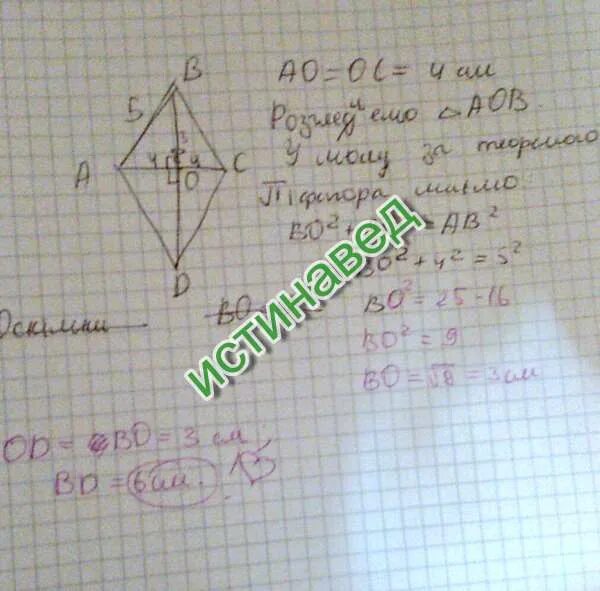 B
5
3
4
4
A
C
O
D
AO = OC = 4 см
Розглед'емо △AOB.
У ному за теоремою
Піфагора маємо
BO² + = AB²
BO² + 4² = 5²
BO² = 25 - 16
BO² = 9
BO = √8 = 3 см
Оскільки BO
OD = BO = 3 см
BD = 6 см.
истинавед